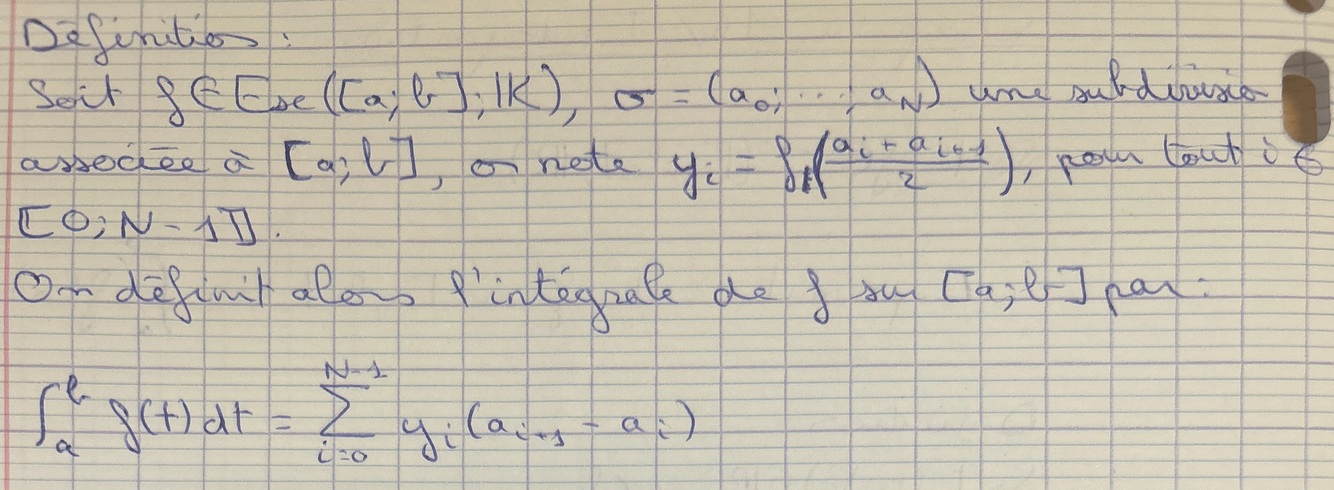 Définition :
Soit f ∈ Esc([a; b]; IK), σ = (a₀; ...; a_N) une subdivision
associée à [a; b], on note y_i = f((a_i + a_{i+1})/2), pour tout i ∈
⟦0; N-1⟧.
On définit alors l'intégrale de f sur [a; b] par :
∫_a^b f(t) dt = ∑_{i=0}^{N-1} y_i (a_{i+1} - a_i)